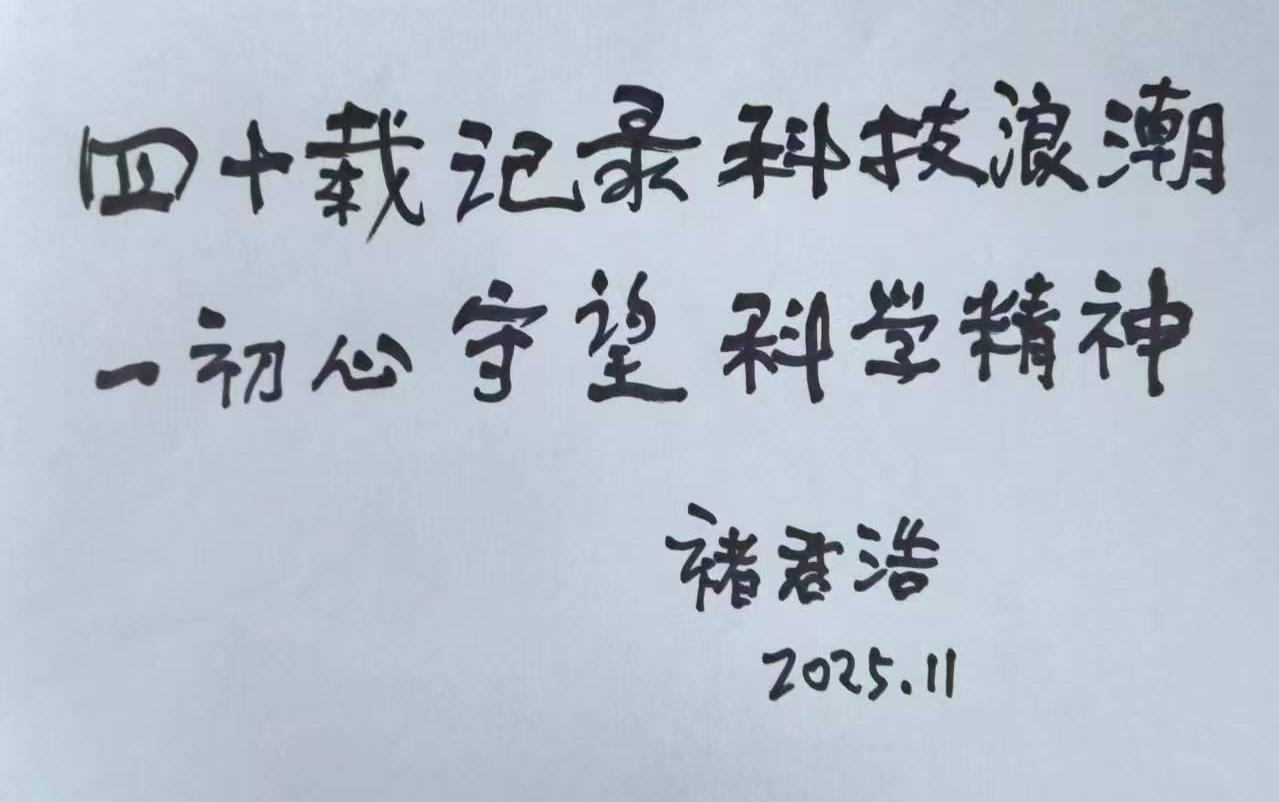 四十载记录科技浪潮
一初心守望科学精神
褚君浩
2025.11